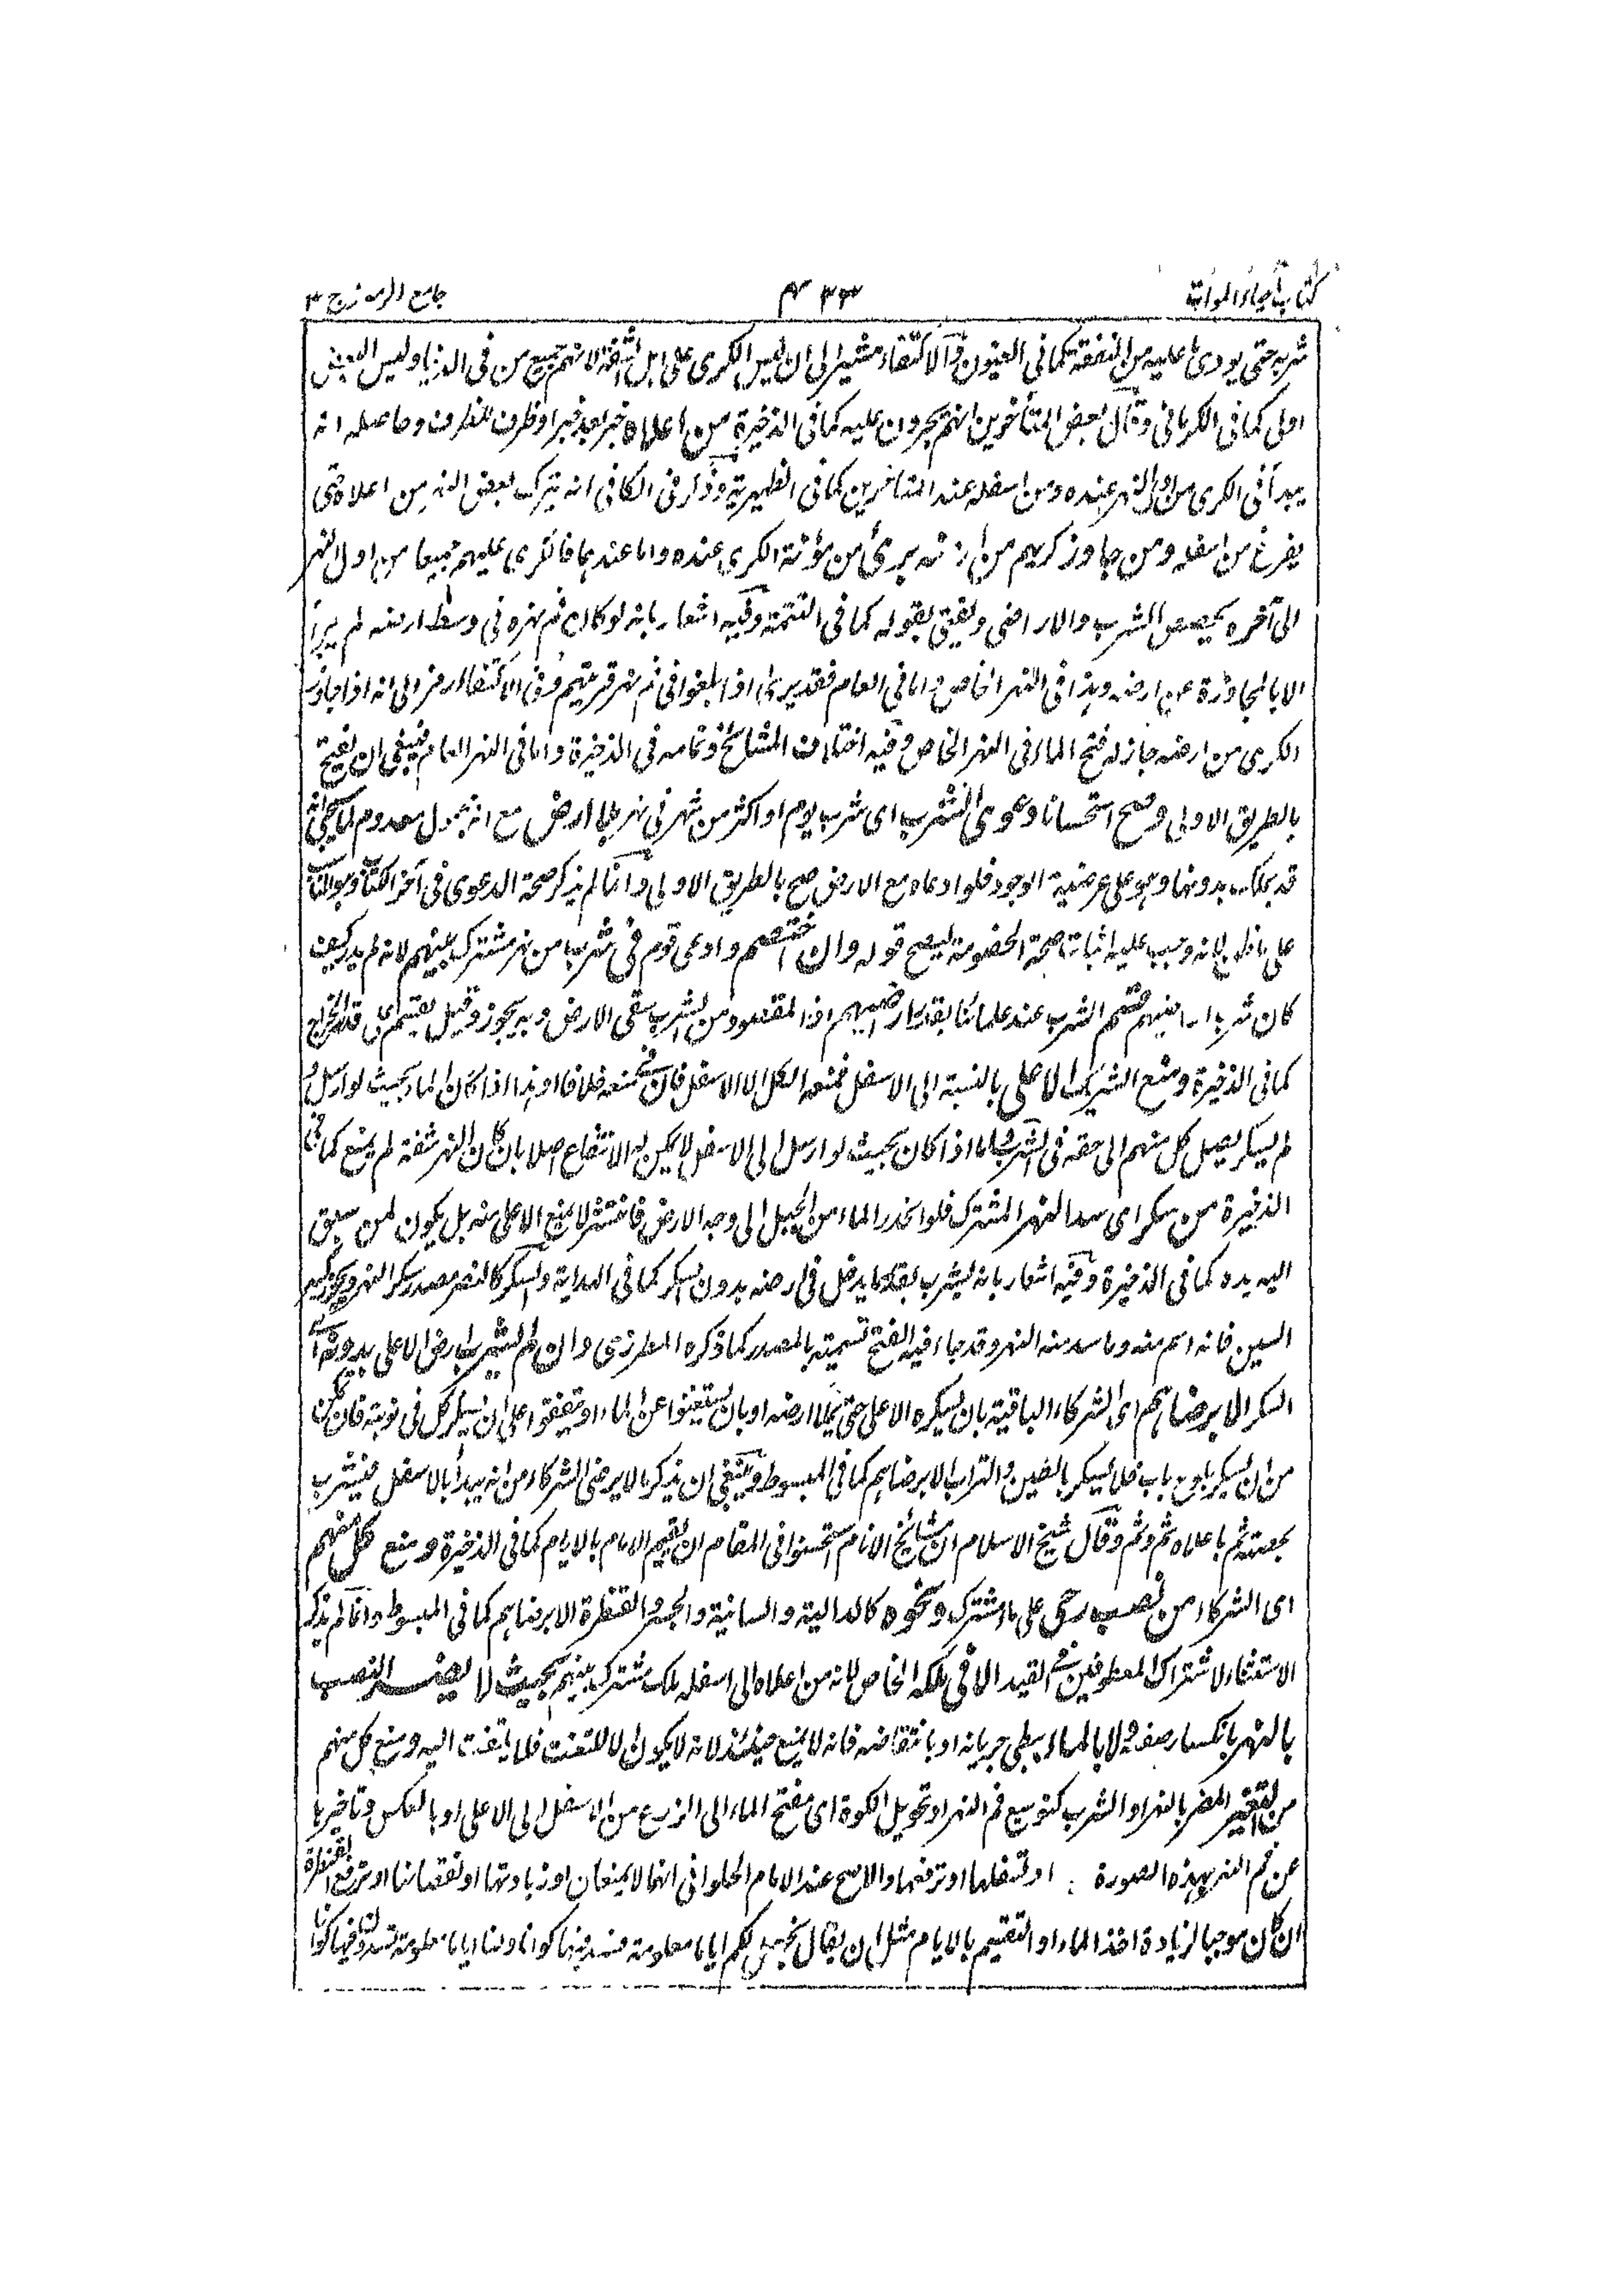 كتاب احياء الموات
۳۳۴
جامع الرموز ج ۳
شربه حتى يودى ما عليه من النفقة كما فى العيون وفى الاكتفاء مشير الى ان ليس الكرى على اهل الشفة لانهم جميع من فى الدنيا وليس البعض
اولى كما فى الكرمانى وقال بعض المتأخرين انهم يجبرون عليه كما فى الذخيرة من اعلاه خبر بعد خبر او ظرف للظرف وحاصله انه
يبدأ فى الكرى من اول النهر عنده ومن اسفله عند المتأخرين كما فى الظهيرية وذكر فى الكافى انه يترك بعض النهر من اعلاه حتى
يفرغ من اسفله ومن جاوز كريهم من ارضه برئ من مؤنة الكرى عنده واما عندهما فالكرى عليهم جميعا من اول النهر
الى آخره بحصص الشرب والاراضى ويفتى بقوله كما فى التتمة وفيه اشعار بانه لو كان فم نهره فى وسط ارضه لم يبرأ
الا بالمجاوزة عن ارضه وهذا فى النهر الخاص واما فى العام فقد برئ اذا بلغوا فى فم نهر قريتهم وفى الاكتفاء رمز الى انه اذا جاوز
الكرى من ارضه جاز له فتح الماء فى النهر الخاص وفيه اختلاف المشائخ وتمامه فى الذخيرة واما فى النهر العام فينبغى ان يفتح
بالطريق الاولى وصح استحسانا دعوى الشرب اى شرب يوم او اكثر من شهر فى نهر بلا ارض مع انه مجهول معدوم لما يجئ انه
قد يملك بدونها وهو على عرضية الوجود فلو ادعاه مع الارض صح بالطريق الاولى وانما لم يذكر صحة الدعوى فى آخر الكتاب وهو المناسب
على لانه وجب عليه اثبات صحة الخصومة ليصح قوله وان اختصم وادعى قوم فى شرب من نهر مشترك بينهم لانه لم يدر كيف
كان شرب اراضيهم قسم الشرب عند علمائنا بقدر اراضيهم اذ المقصود من الشرب سقى الارض وبه يجوز وقيل يقسم على قدر الخراج
كما فى الذخيرة ومنع الشريك الاعلى بالنسبة الى الاسفل فمنعه الكل الا الاسفل فان منعه خلافا وهذا اذا كان الماء بحيث لو ارسل و
لم يسكر يصل كل منهم الى حقه فى الشرب واما اذا كان بحيث لو ارسل الى الاسفل لا يمكن له الانتفاع اصلا بان كان النهر شفة لم يمنع كما فى
الذخيرة من سكر اى سد النهر المشترك فلو انحدر الماء من الجبل الى وجه الارض فانتشر لا يمنع الاعلى منه بل يكون لمن سبق
اليه يده كما فى الذخيرة وفيه اشعار بانه يشرب بقدر ما يدخل فى ارضه بدون سكر كما فى الهداية والسكر كالنصر مصدر سكر النهر ويجوز كسر
السين فانه اسم منه وما سد منه النهر وقد جاء فيه الفتح تسمية بالمصدر كما ذكره المطرزى وان لم يشرب ارض الاعلى بدونه اى
السكر الا برضاهم اى الشركاء الباقية بان يسكره الاعلى حتى يملأ ارضه او بان يستغنوا عن الماء او يتفقوا على ان يسكر كل فى نوبته فان تمكن
من ان يسكر بلوح باب فلا يسكر بالطين والتراب الا برضاهم كما فى المبسوط وينبغى ان يذكر ما لا يرضى الشركاء من انه يبدأ بالاسفل فيشرب
بحصته ثم باعلاه ثم وثم وقال شيخ الاسلام ان مشائخ الانام استحسنوا فى المقام ان يقسم الامام بالايام كما فى الذخيرة ومنع كل منهم
اى الشركاء من نصب رحى على ما اشترك ونحوه كالدالية والسانية والجسر والقنطرة الا برضاهم كما فى المبسوط وانما لم يذكر
الاستثناء لاشتراك المعطوفين فى القيد الا فى ملكه الخاص لانه من اعلاه الى اسفله ملك مشترك بينهم بحيث لا يضر النصب
بالنهر بانكسار ضفته ولا بالماء ببطئ جريانه او بانتقاصه فانه لا يمنع حينئذ لانه لا يكون الا للتعنت فلا يلتفت اليه ومنع كل منهم
من التغيير المضر بالنهر او الشرب كتوسيع فم النهر او تحويل الكوة اى مفتح الماء الى الزرع من الاسفل الى الاعلى او بالعكس وتاخيرها
عن فم النهر بهذه الصورة او تسفلها او ترفعها والاصح عند الامام الحلوانى انهما لا يمنعان او زيادتها او نقصانها او ترفع القنطرة
ان كان موجبا لزيادة اخذ الماء او التقسيم بالايام مثل ان يقال نجعل لكم اياما معلومة فنسد فيها كوانا ولنا اياما معلومة تسدوا فيها كواكم